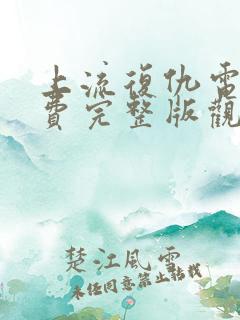 上流復仇電
費完整版觀
楚江風雲
未经同意禁止转载